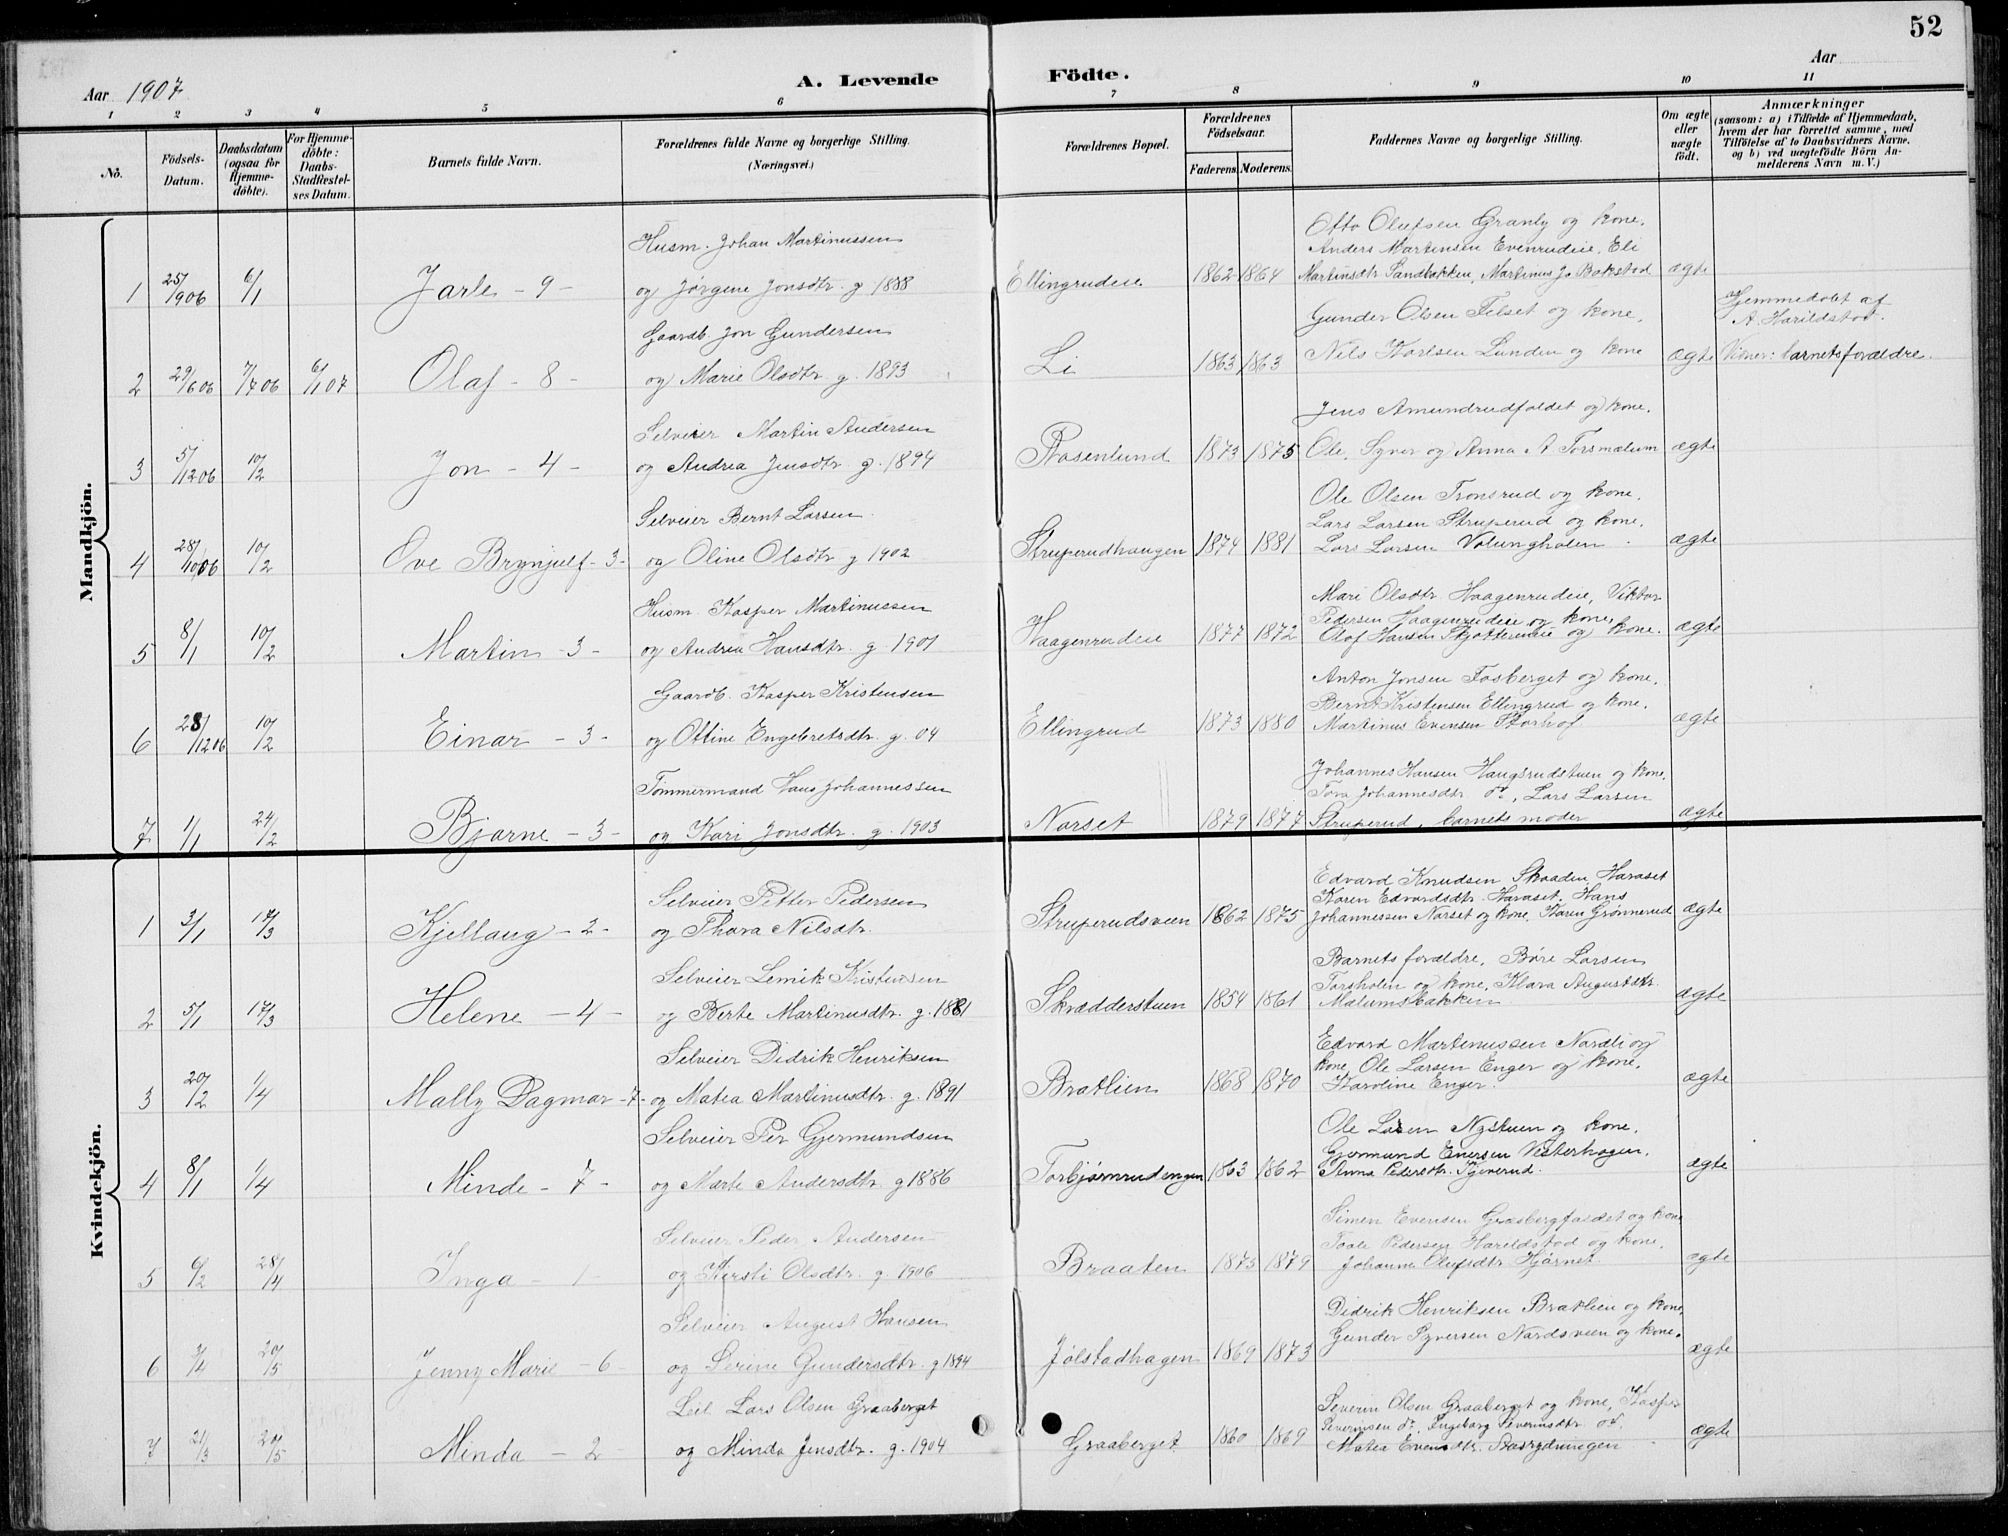 52
Aar 1907
A. Levende Födte.
Aar
1 2 3 4 5 6 7 8 9 10 11
No.
Födsels-Datum.
Daabsdatum (ogsaa for Hjemmedöbte).
For Hjemmedöbte: Daabs-Stadfæstelses Datum.
Barnets fulde Navn.
Forældrenes fulde Navne og borgerlige Stilling. (Næringsvei.)
Forældrenes Bopæl.
Forældrenes Födselsaar.
Faderens. Moderens.
Faddernes Navne og borgerlige Stilling.
Om ægte eller uægte födt.
Anmærkninger
(saasom: a) i Tilfælde af Hjemmedaab, hvem der har forrettet samme, med Tilföielse af to Daabsvidners Navne, og b) ved uægtefödte Börn Anmelderens Navn m. V.)
Mandkjön.
Husm. Johan Martinussen
Otto Olufsen Granly og kone.
Anders Martinsen Evenrudeie, Eli
1 25/1906 6/1 Jarle - 9 - og Jørgine Jonsdtr. g. 1888 Ellingrudeie 1862 1864 Martinsdtr Sandbakken, Martinus Jo Bakstad ægte
Gaardb. Jon Gundersen
Gunder Olsen Felset og kone,
Hjemmedøbt af A. Harildstad.
2 29/6 06 7/7 06 6/1 07 Olaf - 8 - og Marie Olsdtr. g. 1893 Li 1863 1863 Nils Karlsen Lunden og kone ægte Vidner: barnets forældre.
Selveier Martin Andersen
Jens Amundrudfaldet og kone.
3 5/12 06 10/2 Jon - 4 - og Andrea Jensdtr. g. 1894 Rosenlund 1873 1875 Ole, Syver og Anna A Torsmælum ægte
Selveier Bernt Larsen
Ole Olsen Tronsrud og kone.
Lars Larsen Struperud og kone.
4 28/10 06 10/2 Ove Brynjulf - 3 - og Oline Olsdtr. g 1902 Struperudhaugen 1874 1881 Lars Larsen Volungholen ægte
Husm. Kasper Martinussen
Mari Olsdtr Haagenrudeie, Viktor
Pedersen Haagenrudeie og kone
5 8/1 10/2 Martin - 3 - og Andrea Hansdtr. g. 1901 Haagenrudeie 1877 1872 Olaf Hansen Skjøttereie og kone. ægte
Gaardb. Kasper Kristensen
Anton Jonsen Fosberget og kone.
Bernt Kristensen Ellingrud og kone.
6 28/12 06 10/2 Einar - 3 - og Ottine Engebretsdtr. g. 04 Ellingrud 1873 1880 Martinus Evensen Storhof ægte
Tømmermand Hans Johannessen
Johannes Hansen Haugsrudstuen og kone.
Tora Johannesdtr do., Lars Larsen
7 1/1 24/2 Bjarne - 3 - og Kari Jonsdtr. g. 1903 Narset 1879 1877 Struperud, barnets moder ægte
Kvindekjön.
Selveier Petter Pedersen
Edvard Knudsen Skaaden, Haraset
Karen Edvardsdtr. Haraset, Hans
1 3/1 17/3 Kjellaug - 2 - og Thora Nilsdtr. Struperudsveen 1862 1875 Johannessen Narset og kone, Karen Grønnerud ægte
Selveier Lemik Kristensen
Barnets forældre, Børe Larsen
Torsholen og kone, Klara Augustdtr.
2 5/1 17/3 Helene - 4 - og Berte Martinusdtr. g. 1881 Skrædderstuen 1854 1861 Mælumsbakken ægte
Selveier Didrik Henriksen
Edvard Martinussen Nordli og
kone, Ole Larsen Enger og kone.
3 20/2 1/4 Mally Dagmar - 7 - og Matea Martinusdtr. g. 1891 Bratlien 1868 1870 Karoline Enger. ægte
Selveier Per Gjermundsen
Ole Larsen Nystuen og kone.
Gjermund Enersen Vesterhagen.
4 8/1 1/4 Minde - 7 - og Marte Andersdtr. g 1886 Torbjørnrudengen 1863 1862 Anna Pedersdtr. Kjøverud. ægte
Selveier Peder Andersen
Simen Evensen Græsbergfaldet og kone
Taale Pedersen Hareldstad og kone.
5 6/2 28/4 Inga - 1 - og Kjersti Olsdtr. g. 1906 Braaten 1873 1879 Johanne Olufsdtr Hjørnet. ægte
Selveier August Hansen
Didrik Henriksen Bratlien og kone.
Gunder Syversen Nordsveen og kone.
6 7/4 20/5 Jenny Marie - 6 - og Serine Gundersdtr. g 1894 Jølstadhagen 1869 1873 ægte
Leil. Lars Olsen Graaberget
Severin Olsen Graaberget og kone, Kasper
Severinsen do., Ingeborg Severinsdtr. do.
7 21/3 20/5 Minda - 2 og Minda Jensdtr. g. 1904 Graaberget 1860 1869 Matea Evensdtr. Aasrydningen ægte